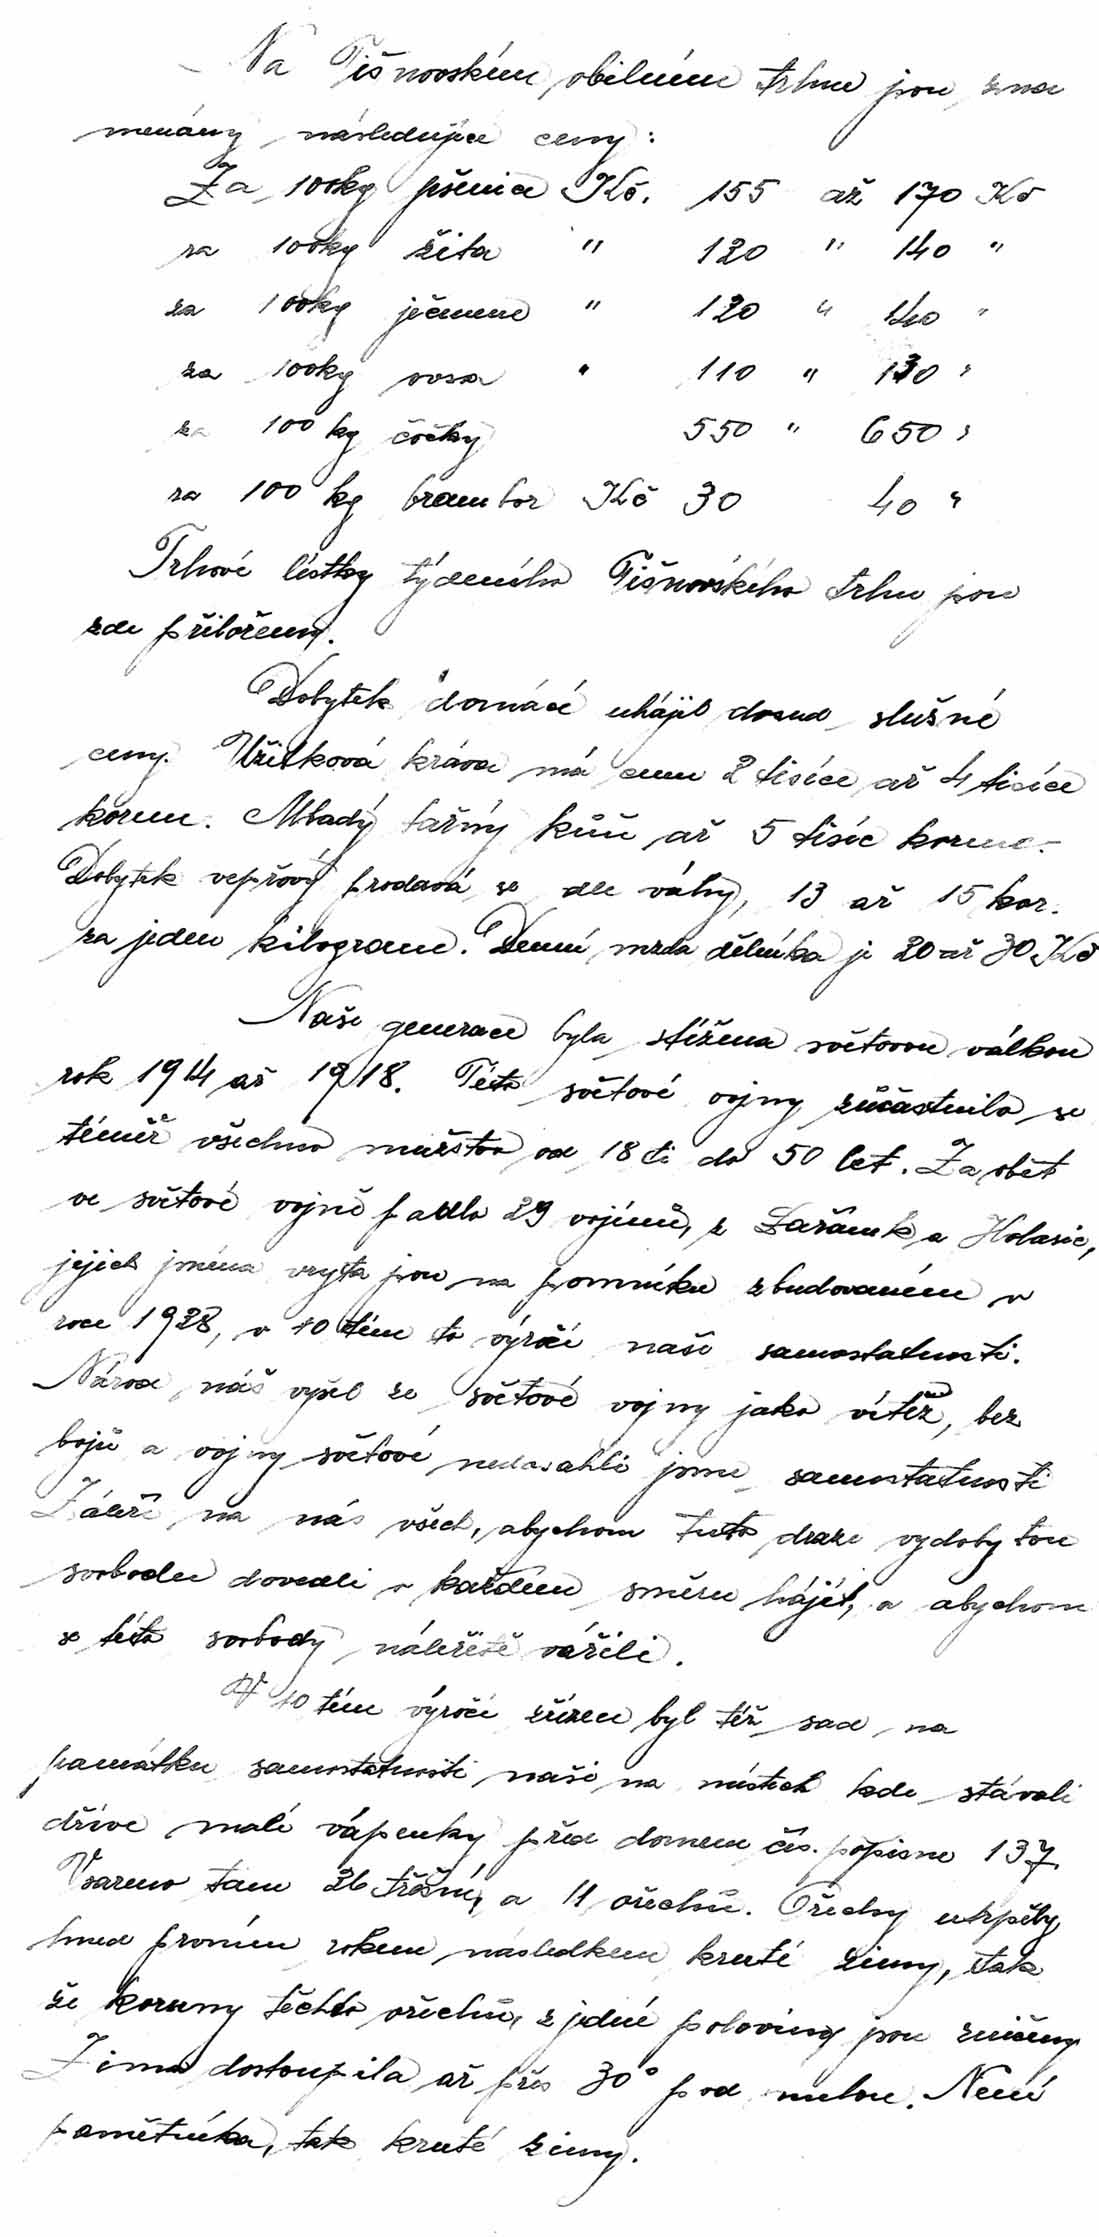 Na Tišnovském obilném trhu jsou zna
menány následující ceny:
Za 100kg pšenice Kč. 155 až 170 Kč
za 100kg žita " 120 " 140 "
za 100kg ječmene " 120 " 140 "
za 100kg ovsa " 110 " 130 "
za 100 kg čočky 550 " 650 "
za 100 kg brambor Kč 30 40 "
Trhové lístky týdeního Tišnovského trhu jsou
zde přiloženy.
Dobytek domácí uhájil dosud slušné
ceny. Užitková kráva má cenu 2 tisíce až 4 tisíce
korun. Mladý tažný kůň až 5 tisíc korun.
Dobytek vepřový prodává se dle váhy, 13 až 15 kor.
za jeden kilogram. Denní mzda dělníka je 20 až 30 Kč
Naše generace byla stížena světovou válkou
rok 1914 až 1918. Této světové vojny zúčastnilo se
téměř všechno mužstvo od 18 ti do 50 let. Za oběť
ve světové vojně padlo 29 vojínů, z Lažánek a Holasic,
jejich jména vryta jsou na pomníku zbudovaném v
roce 1928, v 10 tém to výročí naší samostatnosti.
Národ náš vyšel ze světové vojny jako vítěz, bez
bojů a vojny světové nedosáhli jsme samostatnosti
Záleží na nás všech, abychom tuto draze vydobytou
svobodu dovedli v každém směru hájit, a abychom
si této svobody náležitě vážili.
V 10 tém výročí zřízen byl též sad na
památku samostatnosti naší na místech kde stávali
dříve malé vápenky před domem čís. popisne 137.
Vsazeno tam 26 třešní, a 11 ořechů. Ořechy utrpěly
hned prvním rokem následkem kruté zimy, tak
že koruny těchto ořechů, z jedné poloviny jsou zničeny
Zima dostoupila až přes 30° pod nulou. Není
pamětníka, tak kruté zimy.